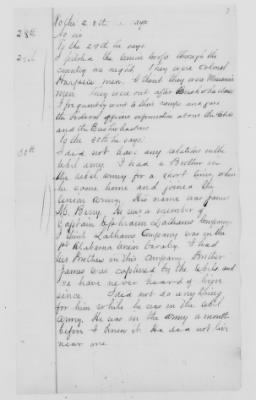 To the 28th he says
28th No sir
To the 29th he says
29th I piloted the Union troops through the
country one night. They were Colonel
men I think they were Missouri
men They were out after Bushwhackers
I frequently went to their camps and gave
the Federal officers information about the Rebs
and the Bushwhackers
To the 30th he says
30th I did not have any relations in the
rebel army. I had a Brother in
the rebel army for a short time, when
he come home and joined the
Union Army, His name was James
M. Berry. He was a member of
Captain Ephraim Lathams Company
I think Lathams Company was in the
1st Alabama Union Cavalry. I had
two Brothers in this company. Brother
James was captured by the Rebels and
I have never heard of him
since. I did not do any thing
for him while he was in the rebel
Army. He was in the army a month
before I knew it. He did not live
near me